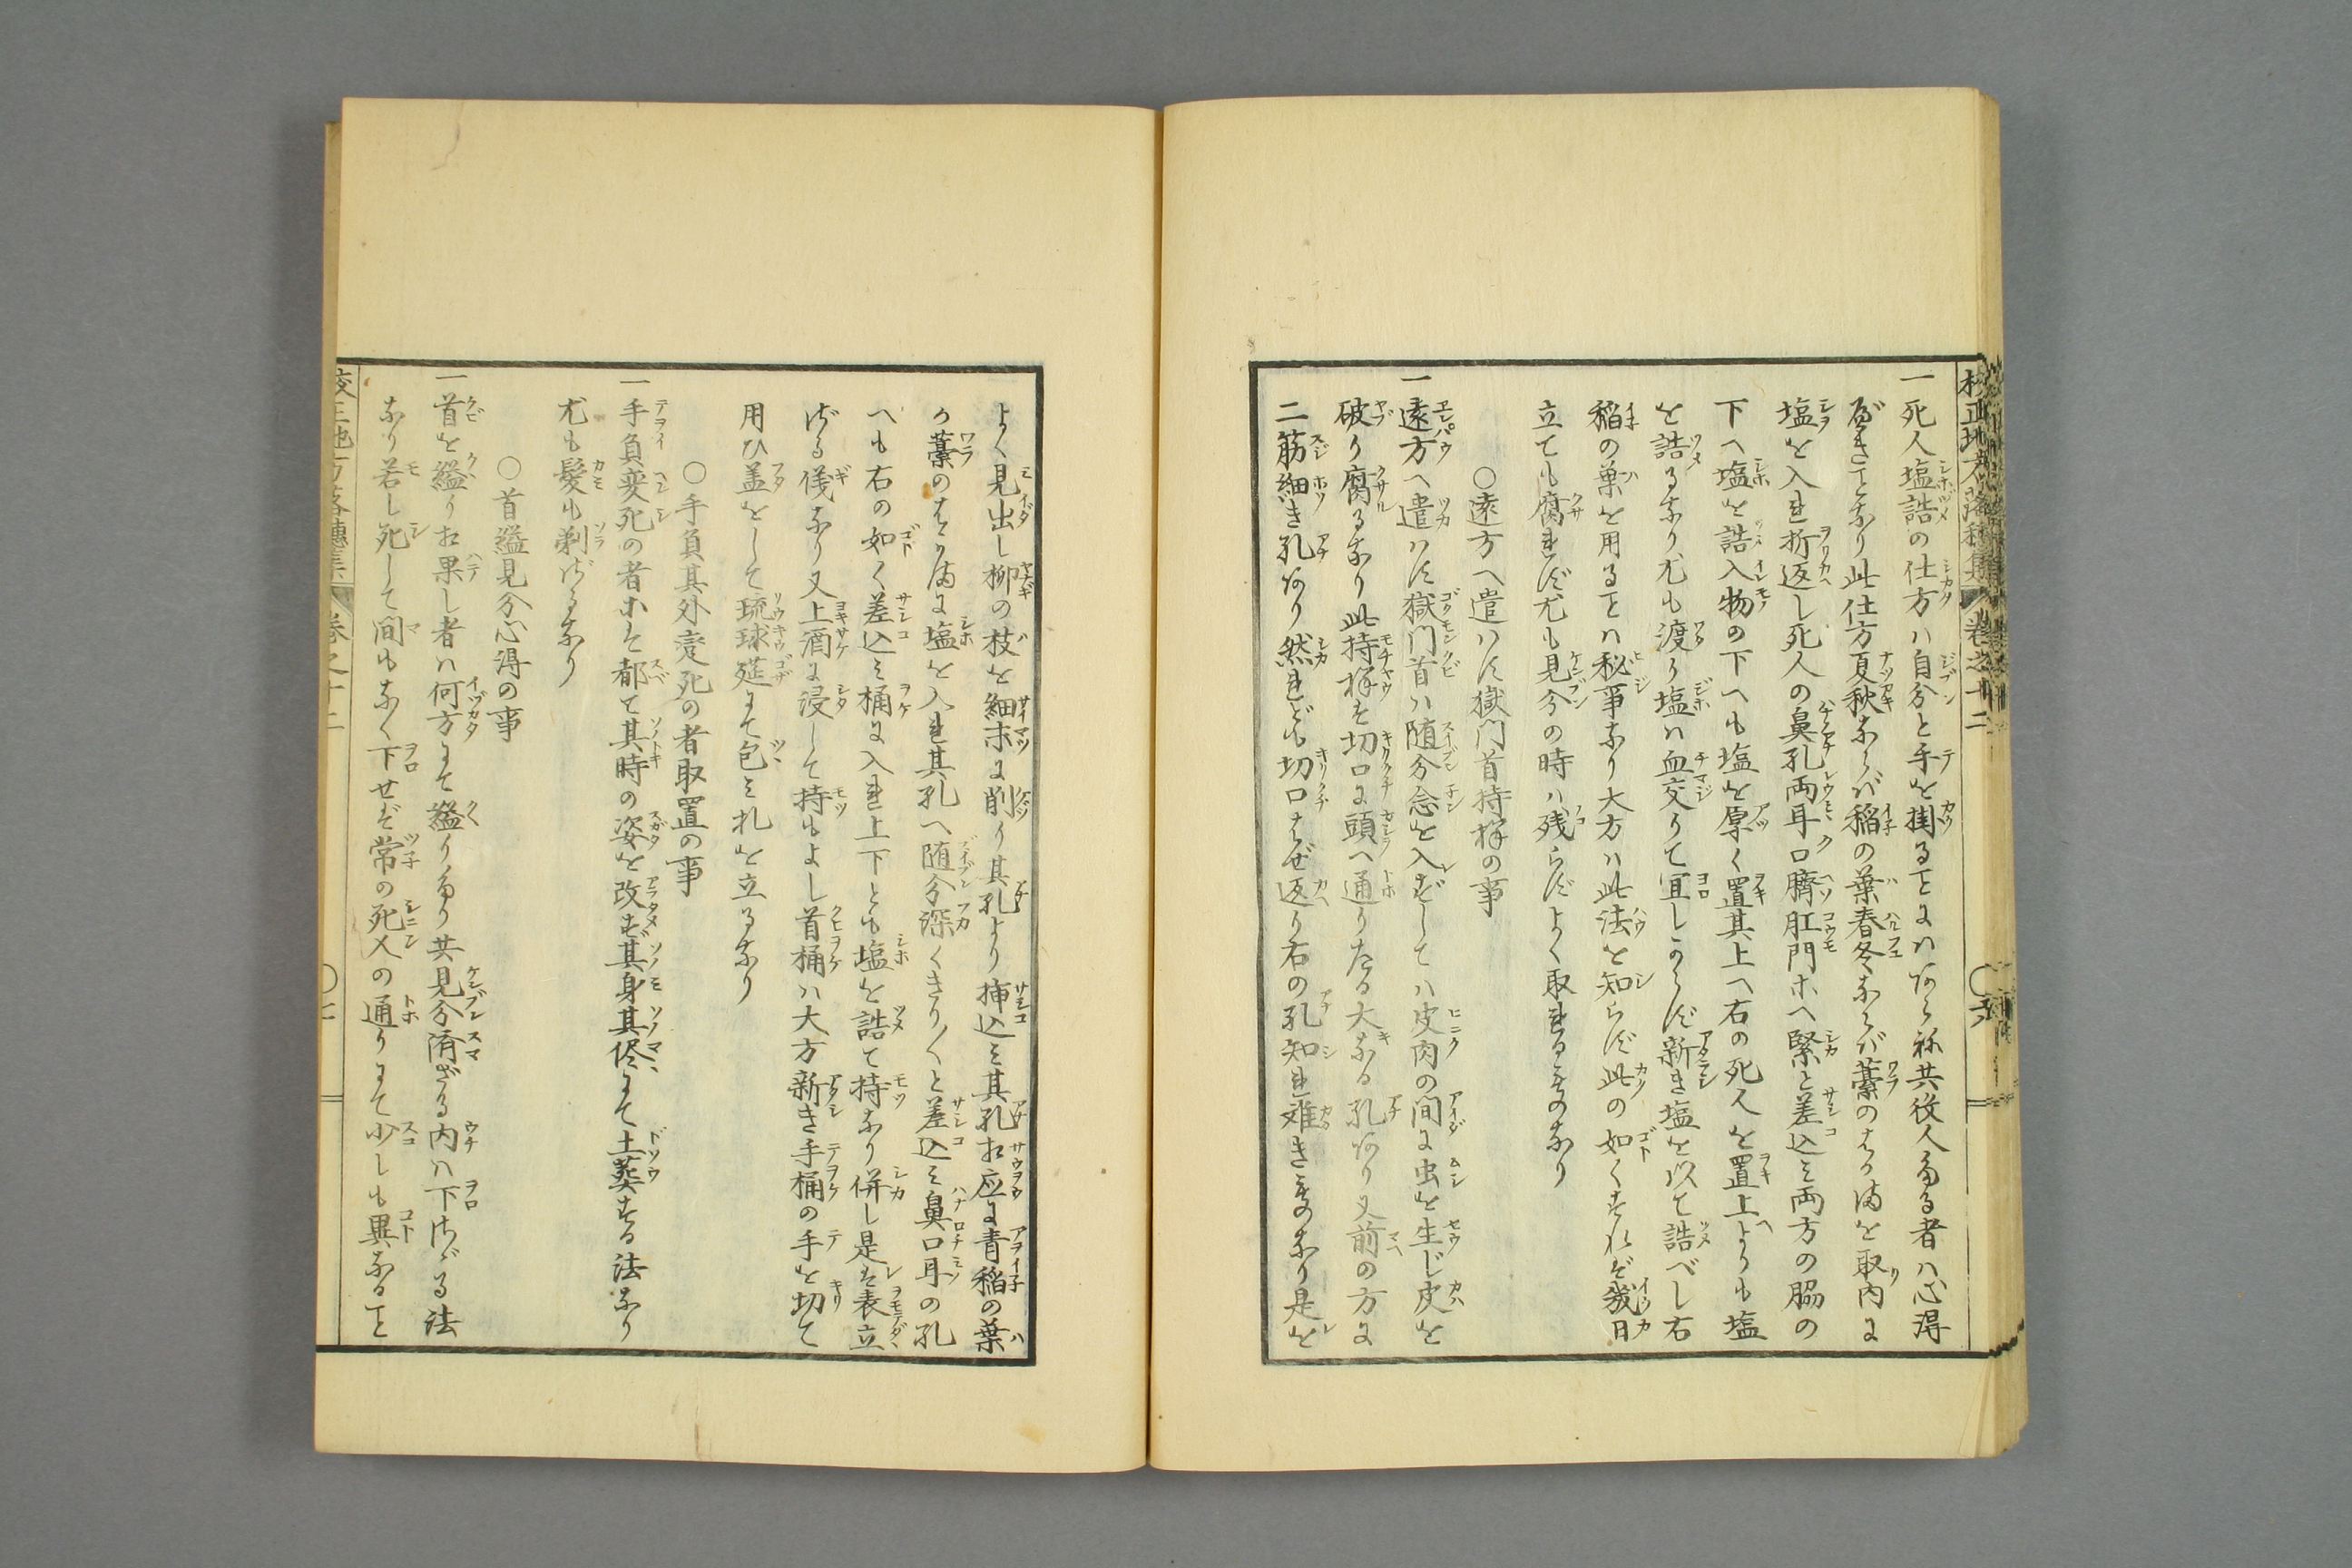 校正地方落穂集 巻之十二 〇六
一死人塩詰の仕方ハ自分と手を掛ることにハあらね共役人たる者ハ心得
べきことなり此仕方夏秋ならバ稲の葉春冬ならバ藁のはかまを取内に
塩を入れ折返し死人の鼻孔両耳口臍肛門ホへ緊と差込ミ両方の脇の
下へ塩を詰入物の下へも塩を厚く置其上へ右の死人を置上よりも塩
を詰るなり尤も渡り塩ハ血交りて宜しからず新き塩を以て詰べし右
稲の葉を用ることハ秘事なり大方ハ此法を知らず此の如くすれば幾日
立ても腐れず尤も見分の時ハ残らずよく取れるものなり
〇遠方へ遣ハす獄門首持様の事
一遠方へ遣ハす獄門首ハ随分念を入れずしてハ皮肉の間に虫を生じ皮を
破り腐るなり此持様は切口に頭へ通りたる大なる孔あり又前の方に
二筋細き孔あり然れども切口はぜ返り右の孔知れ難きものなり是を
よく見出し柳の枝を細末に削り其孔より挿込ミ其孔相応に青稲の葉
か藁のはかまに塩を入れ其孔へ随分深くきり〳〵と差込ミ鼻口耳の孔
へも右の如く差込ミ桶に入れ上下とも塩を詰て持なり併し是は表立
ざる儀なり又上酒に浸して持もよし首桶ハ大方新き手桶の手を切て
用ひ蓋をして琉球莚にて包ミ札を立るなり
〇手負其外変死の者取置の事
一手負変死の者ホは都て其時の姿を改めず其身其侭にて土葬する法なり
尤も髪も剃ざるなり
〇首縊見分心得の事
一首を縊り相果し者ハ何方にて縊りたり共見分済ざる内ハ下さゞる法
なり若し死して間もなく下せば常の死人の通りにて少しも異なること
校正地方落穂集 巻之十二 〇七